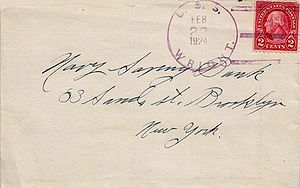 U. S. S.
FEB
1924
WRIGHT.
UNITED STATES POSTAGE
2 CENTS 2
Navy Savings Bank
63 Sands st. Brooklyn
New York.